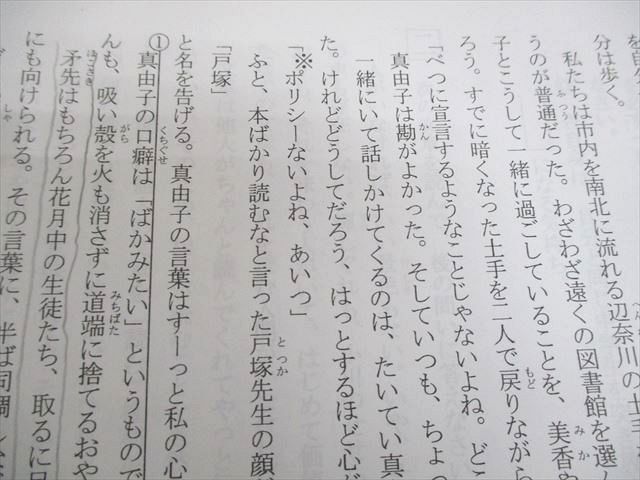 を自
分は歩く。
私たちは市内を南北に流れる辺奈川の土手
うのが普通だった。わざわざ遠くの図書館を選
子とこうして一緒に過ごしていることを、美香や
ろう。すでに暗くなった土手を二人で戻りながら
「べつに宣言するようなことじゃないよね。どこ
真由子は勘がよかった。そしていつも、ちょっ
一緒にいて話しかけてくるのは、たいてい真
た。けれどどうしてだろう、はっとするほど心が
「※ポリシーないよね、あいつ」
ふと、本ばかり読むなと言った戸塚先生の顔が
「戸塚」
と名を告げる。真由子の言葉はすーっと私の心
①真由子の口癖は「ばかみたい」というもので
んも、吸い殻を火も消さずに道端に捨てるおや
矛先はもちろん花月中の生徒たち、取るに足
にも向けられる。その言葉に、半ば同調し